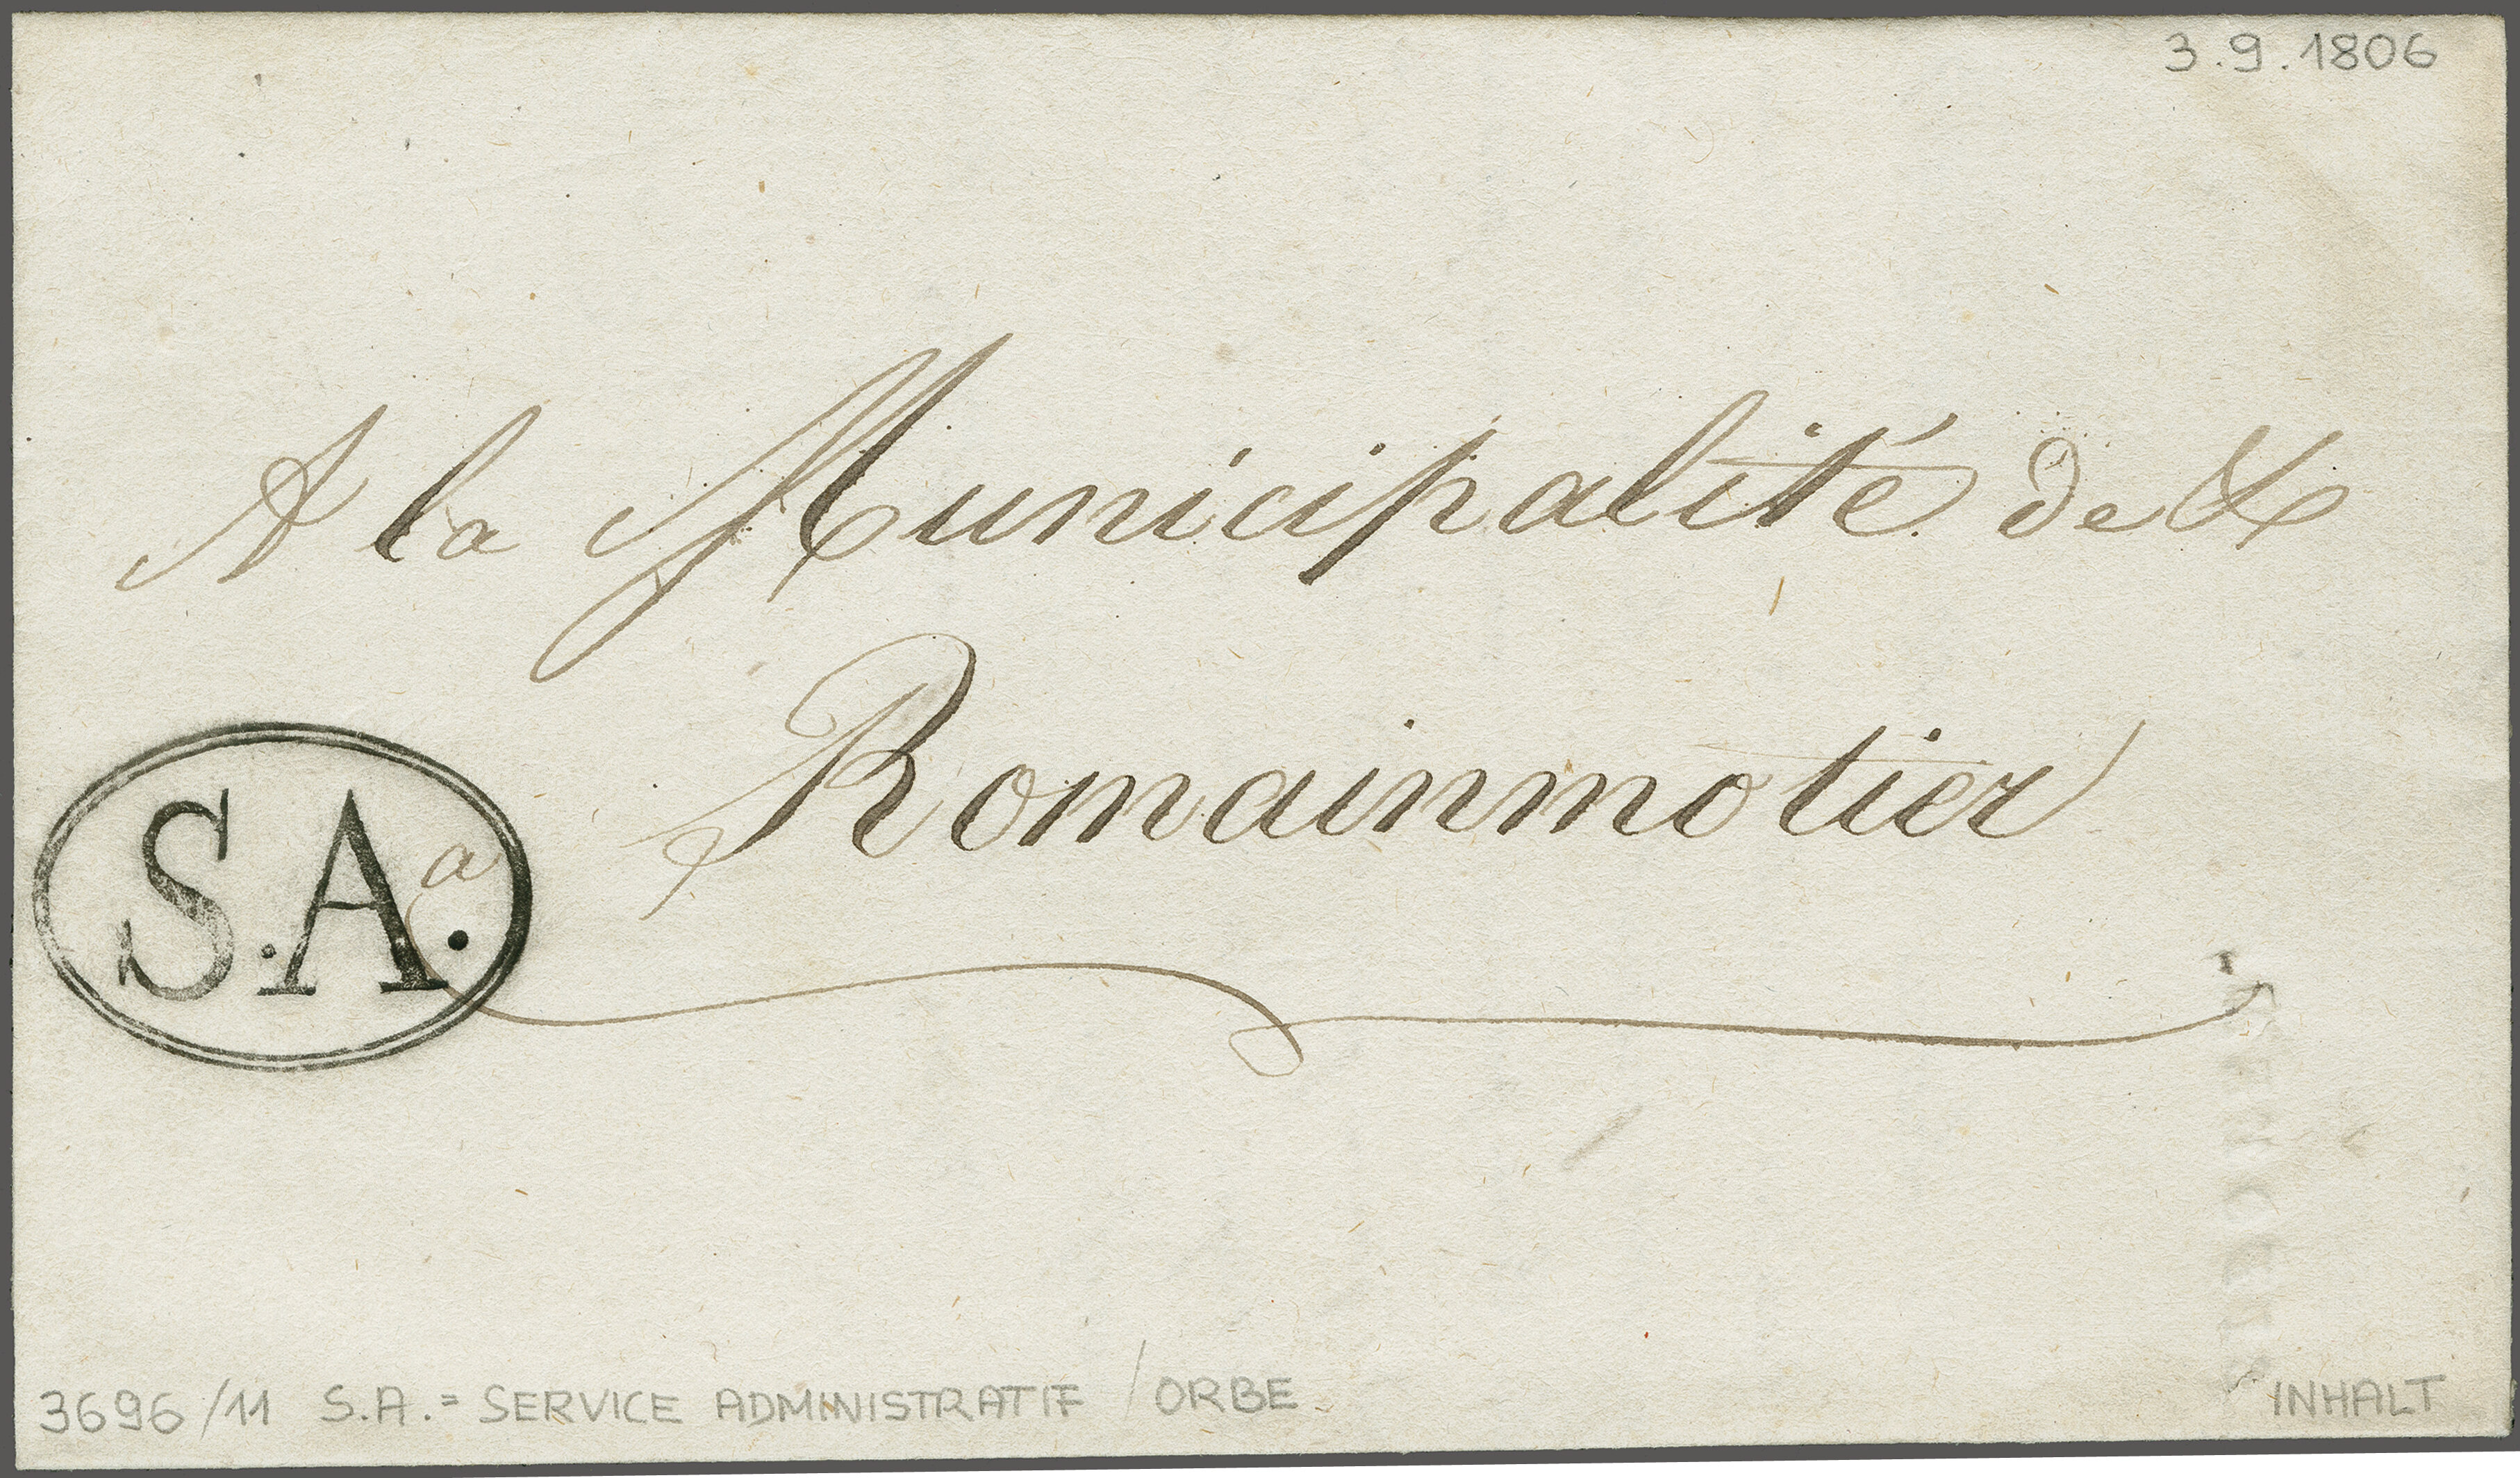 3.9.1806
A la Municipalité de
Romainmotier
a
S.A.
3696/11 S.A. = SERVICE ADMINISTRATIF / ORBE
INHALT